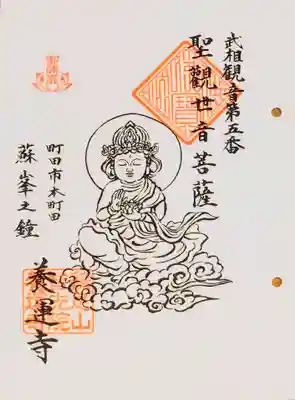 武相観音第五番
聖觀世音菩薩
町田市本町田
蘇峰之鐘
養運寺